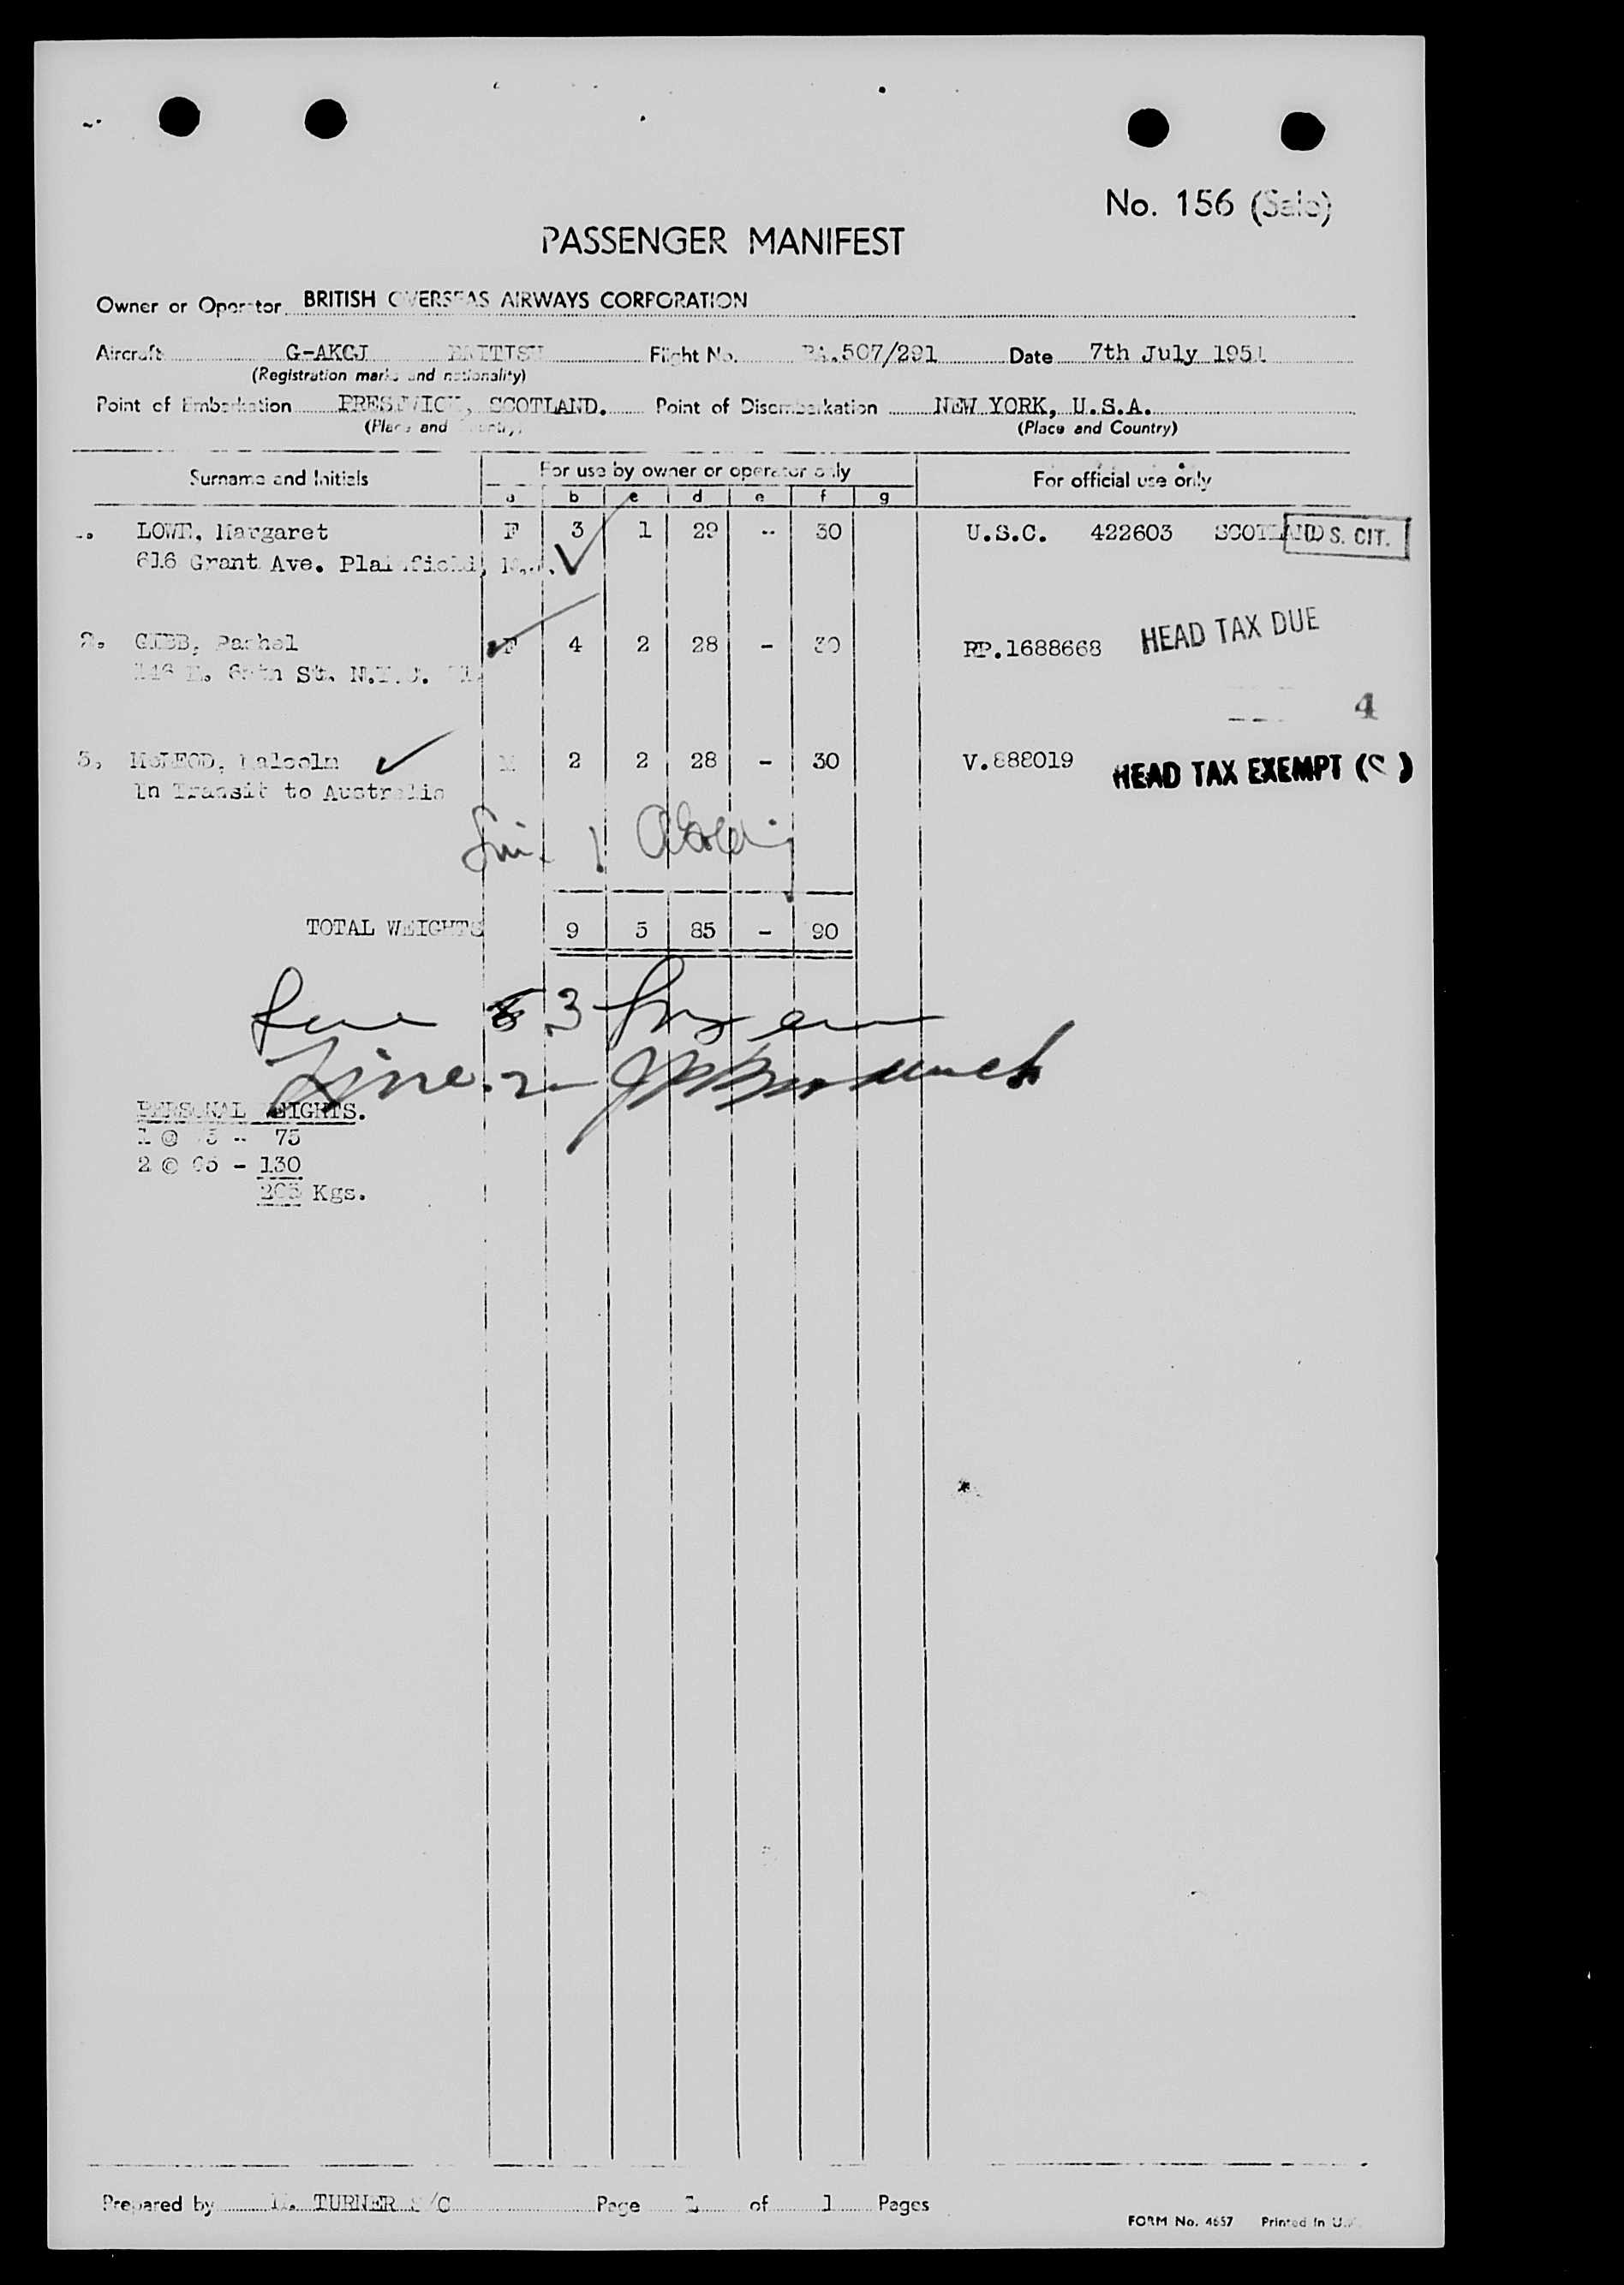 No. 156 (Sale)
PASSENGER MANIFEST
Owner or Operator BRITISH OVERSEAS AIRWAYS CORPORATION
Aircraft G-AKGJ BRITISH Flight No. BA.507/291 Date 7th July 1951
(Registration marks and nationality)
Point of Embarkation PRESTWICK, SCOTLAND. Point of Disembarkation NEW YORK, U.S.A.
(Place and Country) (Place and Country)
Surname and Initials For use by owner or operator only For official use only
a b c d e f g
1. LOWE, Margaret F 3 1 29 - 30 U.S.C. 422603 SCOTLAND S. CIT.
616 Grant Ave. Plainfield, N.J.
2. GIBB, Rachel F 4 2 28 - 30 RP.1688668 HEAD TAX DUE
St. N.Y.C.
4
3. McLEOD, Malcolm M 2 2 28 - 30 V.888019 HEAD TAX EXEMPT ( )
In Transit to Australia
TOTAL WEIGHTS 9 5 85 - 90
Line
PERSONAL WEIGHTS.
1 @ 75 - 75
2 @ 65 - 130
205 Kgs.
Prepared by TURNER Page 1 of 1 Pages
FORM No. 4657 Printed in U.K.